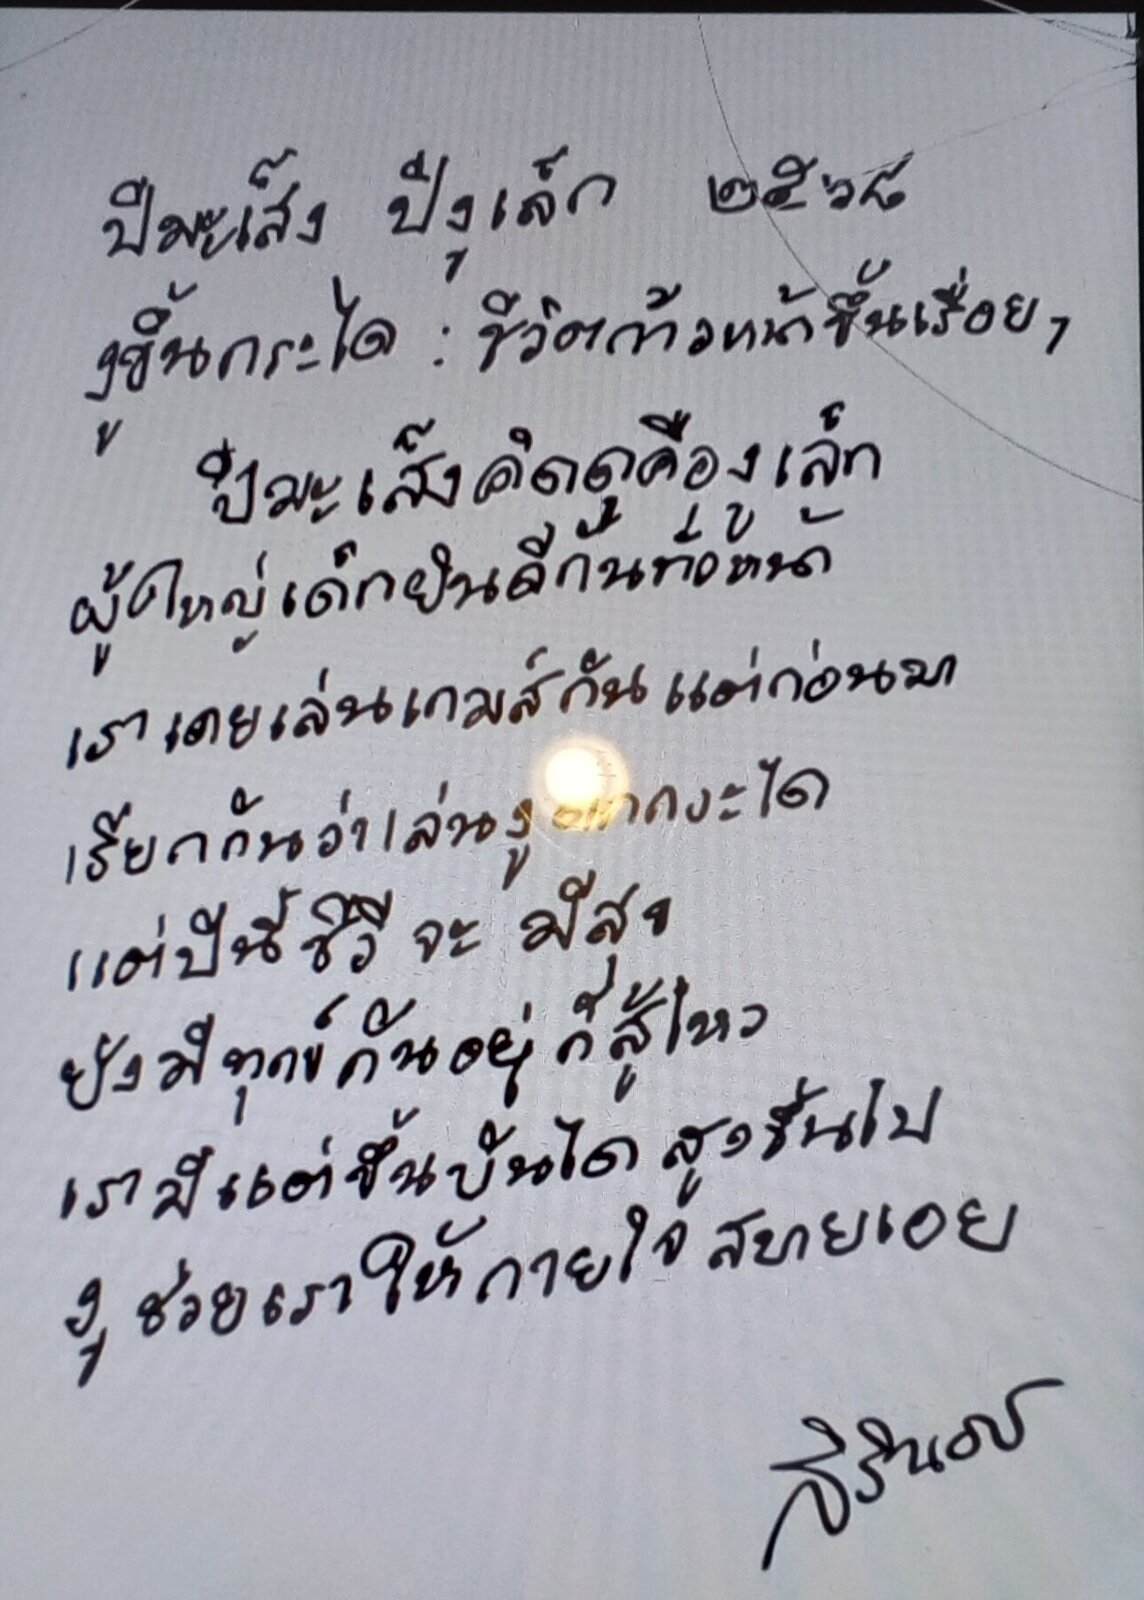 ปีมะเส็ง ปีงูเล็ก ๒๕๖๘
งูขึ้นกระได : ชีวิตก้าวหน้าขึ้นเรื่อยๆ
ปีมะเส็งคิดดูคืองูเล็ก
ผู้ใหญ่เด็กยินดีกันทั่วหน้า
เราเคยเล่นเกมส์กันแต่ก่อนมา
เรียกกันว่าเล่นงูตกกระได
แต่ปีนี้ชีวี จะ มีสุข
ยังมีทุกข์กันอยู่ ก็สู้ไหว
เรามีแต่ขึ้นบันได สูงขึ้นไป
งูช่วยเราให้กายใจ สบายเอย
สิรินธร